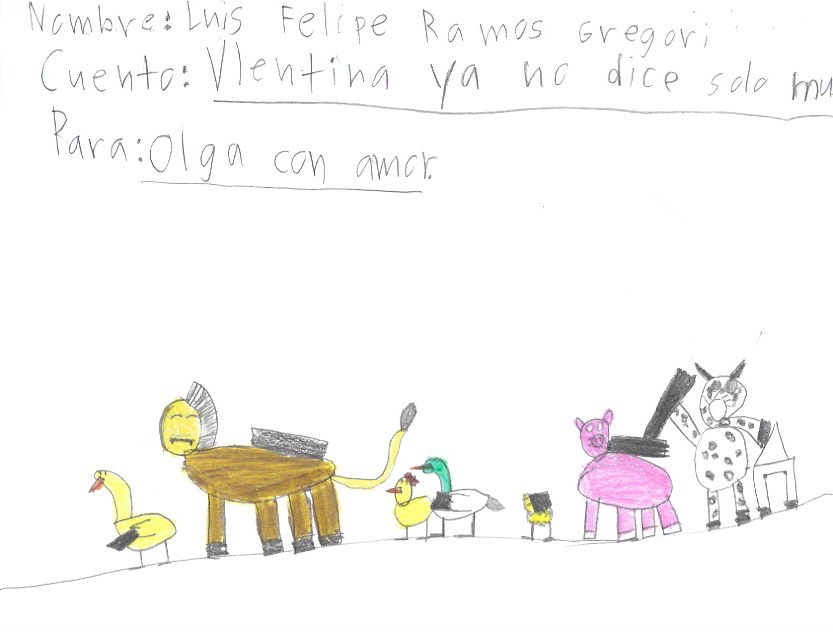 Nombre: Luis Felipe Ramos Gregori
Cuento: Vlentina ya no dice solo mu
Para: Olga con amor.